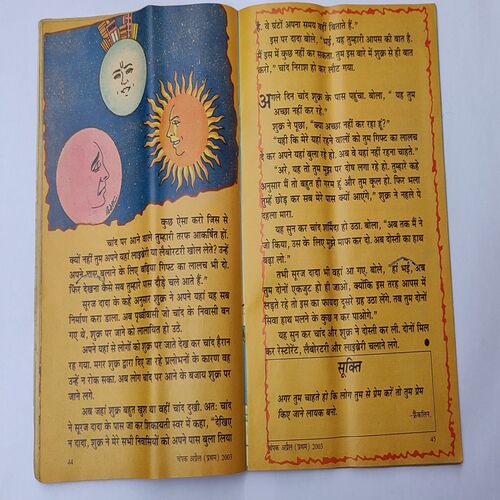 कुछ ऐसा करो जिस से
चांद पर आने वाले तुम्हारी तरफ आकर्षित हों.
क्यों नहीं तुम अपने यहां लाइब्रेरी या लैबोरटरी खोल लेते? उन्हें
अपने पास बुलाने के लिए बढ़िया गिफ्ट का लालच भी दो.
फिर देखना कैसे सब तुम्हारे पास दौड़े चले आते हैं."
सूरज दादा के कहे अनुसार शुक्र ने अपने यहां यह सब
निर्माण करा डाला. अब पृथ्वीवासी जो चांद के निवासी बन
गए थे, शुक्र पर जाने को लालायित हो उठे.
अपने यहां से लोगों को शुक्र पर जाते देख कर चांद हैरान
रह गया. मगर शुक्र द्वारा दिए जा रहे प्रलोभनों के कारण वह
उन्हें न रोक सका. अब लोग चांद पर आने के बजाय शुक्र पर
जाने लगे.
अब जहां शुक्र बहुत खुश था वहीं चांद दुखी. अतः चांद
ने सूरज दादा के पास जा कर शिकायती स्वर में कहा, "देखिए
न दादा, शुक्र ने मेरे सभी निवासियों को अपने पास बुला लिया
44
चंपक अप्रैल (प्रथम) 2003
है. वे घंटों अपना समय वहीं बिताते हैं."
इस पर दादा बोले, "भई, यह तुम्हारी आपस की बात है.
मैं इस में कुछ नहीं कर सकता. तुम इस बारे में शुक्र से ही बात
करो," चांद निराश हो कर लौट गया.
अगले दिन चांद शुक्र के पास पहुंचा. बोला, "यह तुम
अच्छा नहीं कर रहे."
शुक्र ने पूछा, "क्या अच्छा नहीं कर रहा हूं?"
"यही कि मेरे यहां रहने वालों को तुम गिफ्ट का लालच
दे कर अपने यहां बुला रहे हो. अब वे यहां नहीं रहना चाहते."
"अरे, यह तो तुम मुझ पर दोष लगा रहे हो. तुम्हारे कहे
अनुसार मैं तो बहुत ही गरम हूं और तुम कूल हो. फिर भला
तुम्हें छोड़ कर सब मेरे पास क्यों आएंगे," शुक्र ने नहले पे
दहला मारा.
यह सुन कर चांद शर्मिंदा हो उठा. बोला, "अब तक मैं ने
जो किया, उस के लिए मुझे माफ कर दो. अब दोस्ती का हाथ
बढ़ा लो."
तभी सूरज दादा भी वहां आ गए, बोले, "हां भई, अब
तुम दोनों एकजुट हो ही जाओ, क्योंकि इस तरह आपस में
लड़ते रहे तो इस का फायदा दूसरे ग्रह उठा लेंगे. तब तुम दोनों
सिवा हाथ मलने के कुछ न कर पाओगे."
यह सुन कर चांद और शुक्र ने दोस्ती कर ली. दोनों मिल
कर रेस्टोरेंट, लैबोरटरी और लाइब्रेरी चलाने लगे.
सूक्ति
अगर तुम चाहते हो कि लोग तुम से प्रेम करें तो तुम प्रेम
किए जाने लायक बनो.
-फ्रैंकलिन.
चंपक अप्रैल (प्रथम) 2003
45